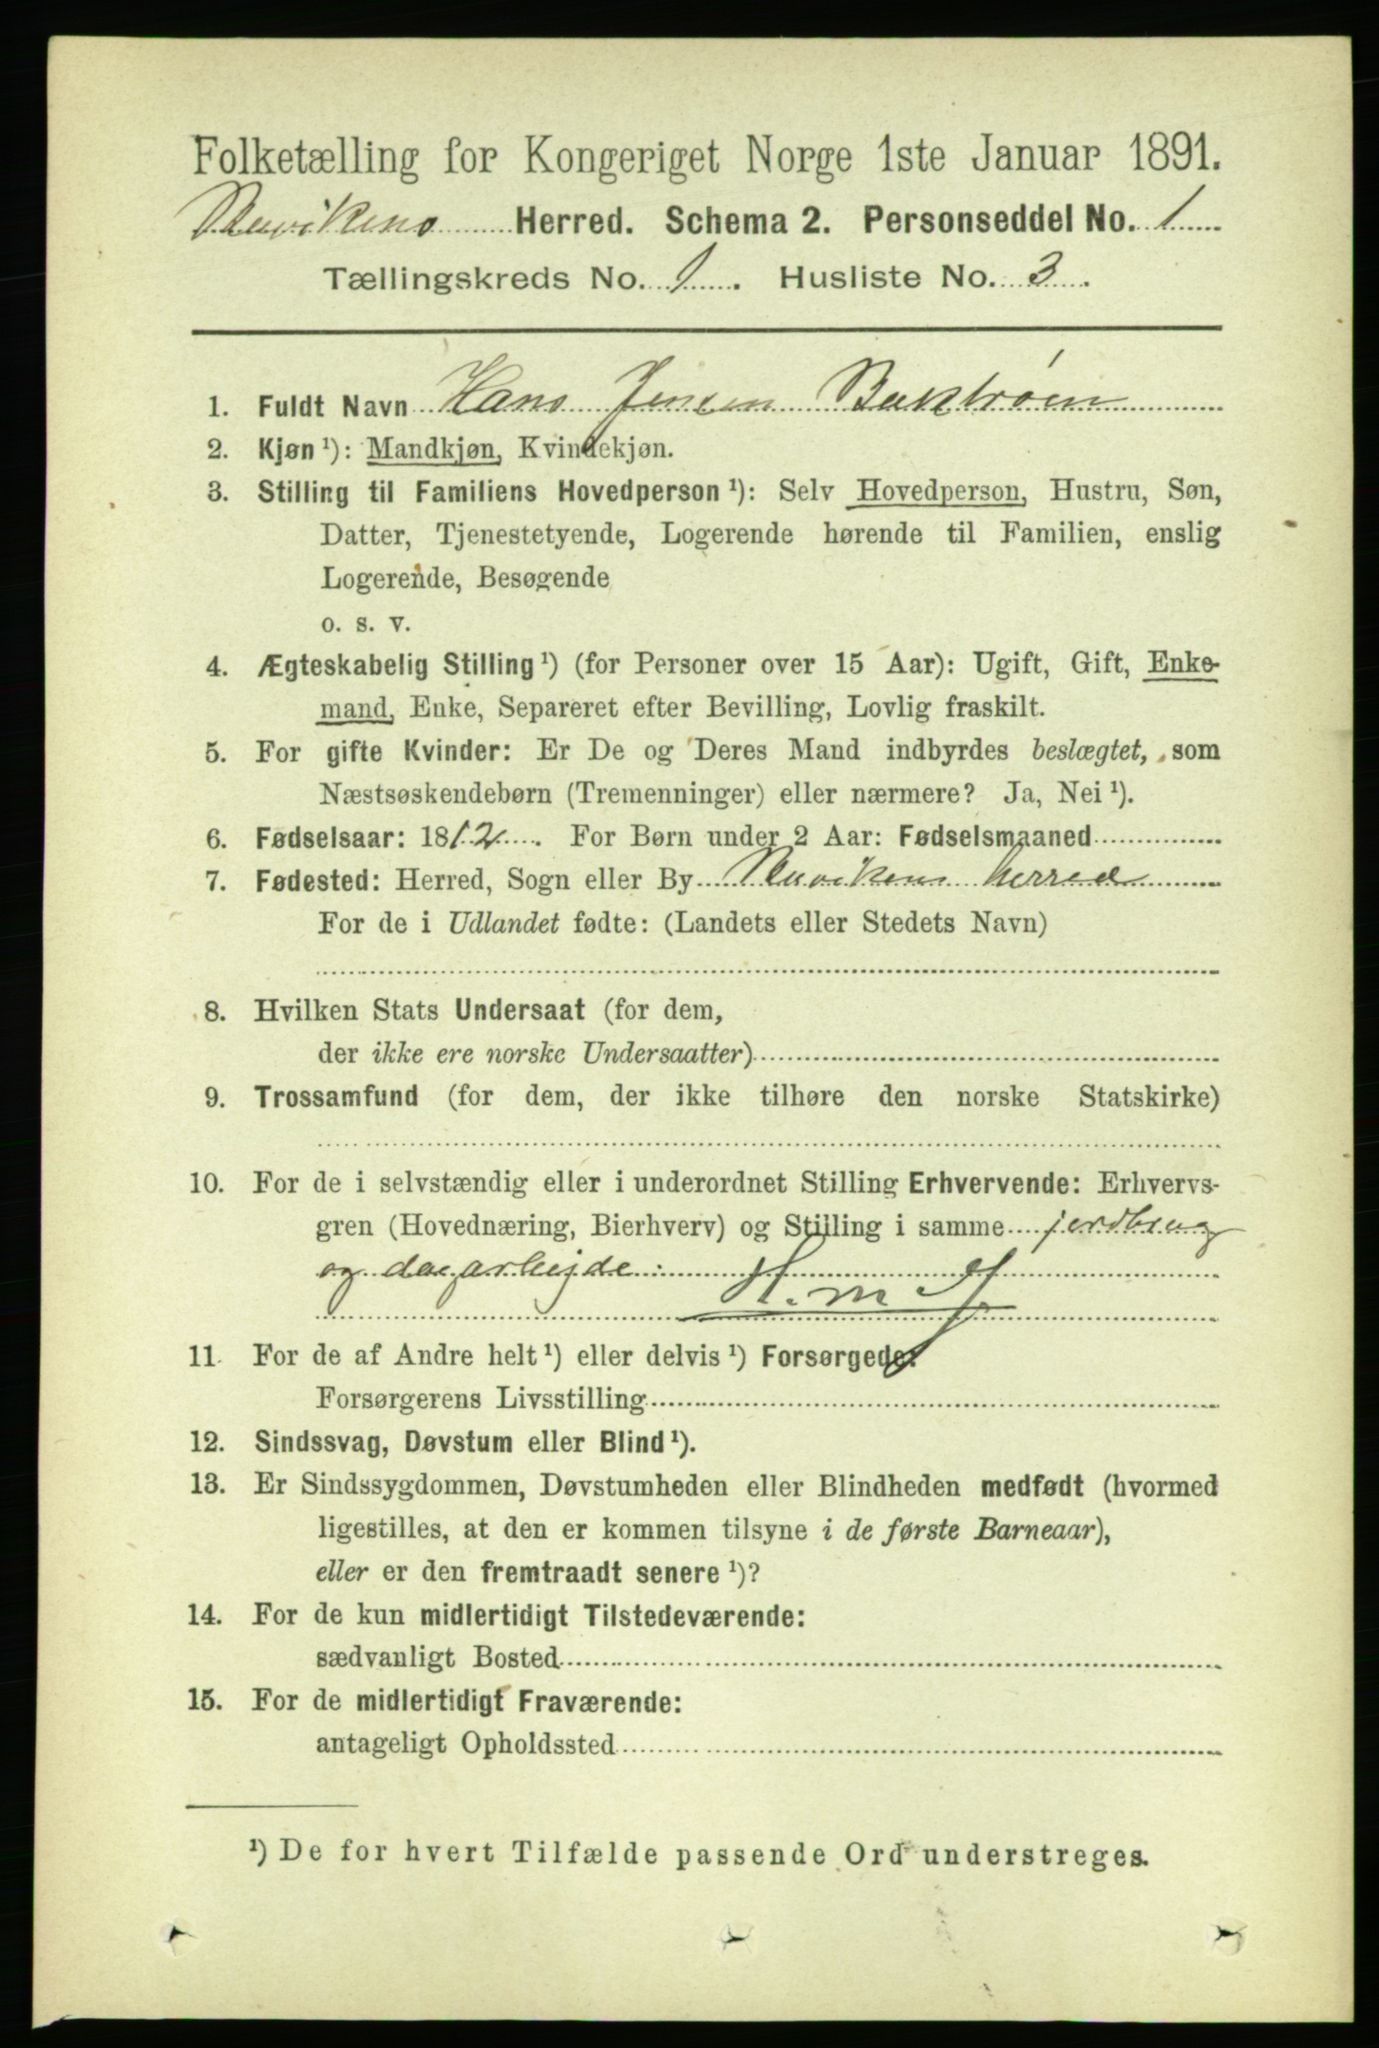 Folketælling for Kongeriget Norge 1ste Januar 1891.
Herred. Schema 2. Personseddel No. 1
Tællingskreds No. 1. Husliste No. 3.
1. Fuldt Navn Hans Jensen
2. Kjøn ¹): Mandkjøn, Kvindekjøn.
3. Stilling til Familiens Hovedperson ¹): Selv Hovedperson, Hustru, Søn,
Datter, Tjenestetyende, Logerende hørende til Familien, enslig
Logerende, Besøgende
o. s. v.
4. Ægteskabelig Stilling ¹) (for Personer over 15 Aar): Ugift, Gift, Enke-
mand, Enke, Separeret efter Bevilling, Lovlig fraskilt.
5. For gifte Kvinder: Er De og Deres Mand indbyrdes beslægtet, som
Næstsøskendebørn (Tremenninger) eller nærmere? Ja, Nei ¹).
6. Fødselsaar: 1812. For Børn under 2 Aar: Fødselsmaaned
7. Fødested: Herred, Sogn eller By herred
For de i Udlandet fødte: (Landets eller Stedets Navn)
8. Hvilken Stats Undersaat (for dem,
der ikke ere norske Undersaatter)
9. Trossamfund (for dem, der ikke tilhøre den norske Statskirke)
10. For de i selvstændig eller i underordnet Stilling Erhvervende: Erhvervs-
gren (Hovednæring, Bierhverv) og Stilling i samme jordbrug
og dagarbejde:
H. m
11. For de af Andre helt ¹) eller delvis ¹) Forsørgede:
Forsørgerens Livsstilling
12. Sindssvag, Døvstum eller Blind ¹).
13. Er Sindssygdommen, Døvstumheden eller Blindheden medfødt (hvormed
ligestilles, at den er kommen tilsyne i de første Barneaar),
eller er den fremtraadt senere ¹)?
14. For de kun midlertidigt Tilstedeværende:
sædvanligt Bosted
15. For de midlertidigt Fraværende:
antageligt Opholdssted
¹) De for hvert Tilfælde passende Ord understreges.